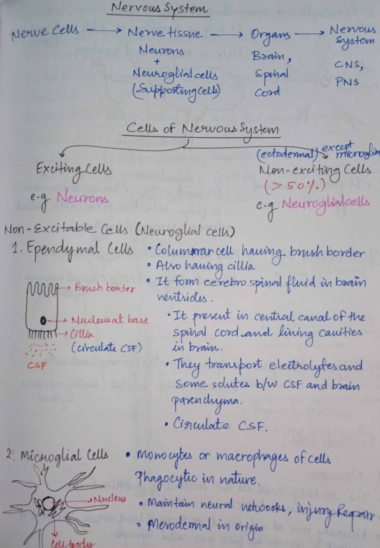 Nervous System
Nerve Cells → Nerve tissue → Organs → Nervous System
Neurons + Neuroglial cells (Supporting cells)
Brain, Spinal Cord
CNS, PNS
Cells of Nervous System
Exciting Cells
e.g Neurons
(ectodermal) except microglia
Non-exciting Cells
(>50%)
e.g Neuroglial cells
Non-Excitable Cells (Neuroglial cells)
1. Ependymal Cells
Brush border
Nucleus at base
Cillia
(circulate CSF)
CSF
• Columnar cell having brush border
• Also having cillia
• It form cerebro spinal fluid in brain
ventricles.
• It present in central canal of the
spinal cord and lining cavities
in brain.
• They transport electrolytes and
some solutes b/w CSF and brain
parenchyma.
• Circulate CSF.
2. Microglial Cells
Nucleus
Cell body
• Monocytes or macrophages of cells
Phagocytic in nature.
• Maintain neural networks, injury Repair
• Mesodermal in origin